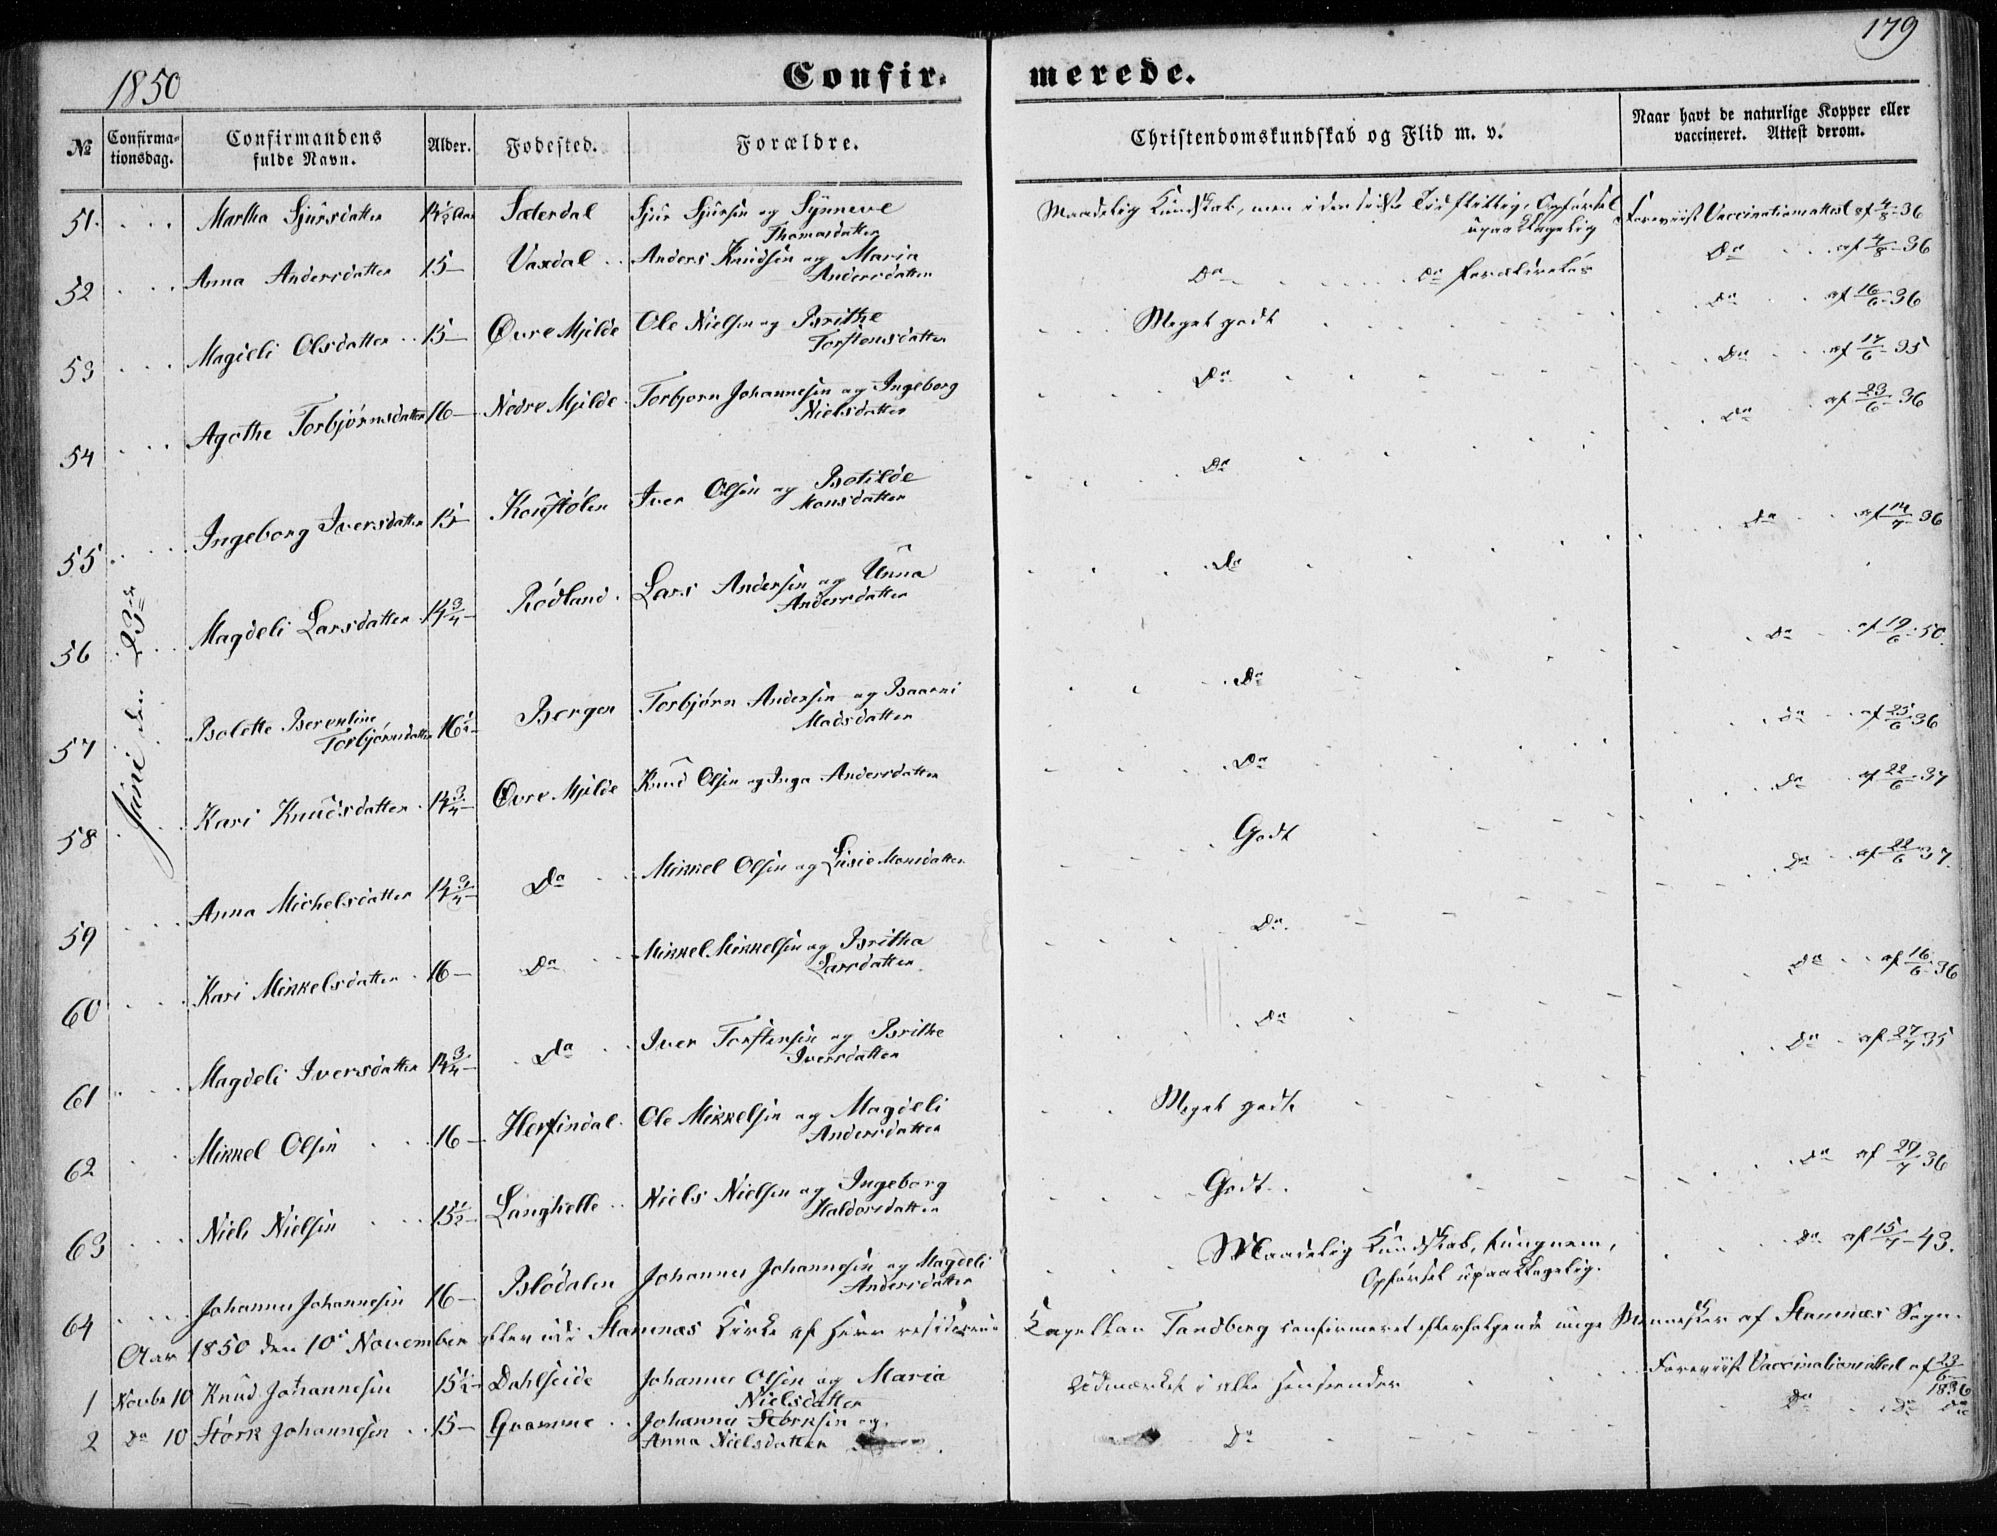 179
1850
Confir- merede.
№ Confirma-tionsdag. Confirmandens fulde Navn. Alder. Fødested. Forældre. Christendomskundskab og Flid m. v. Naar havt de naturlige Kopper eller vaccineret. Attest derom.
Juni den 23de
51. Martha Sjursdatter 14½ Aar Sæterdal Sjur Sjursen og Synneve Thomasdatter Maadelig Kundskab, men i den sidste Tid flittig, Opførsel upaaklagelig Foreviist Vaccinationsattest af 4/8-36
52 Anna Andersdatter 15 Vaxdal Anders Knudsen og Maria Andersdatter Do Do Do af 4/8-36
53 Magdeli Olsdatter 15 Øvre Mjelde Ole Nielsen og Brithe Torstensdatter Meget godt Do af 16/6-36
54 Agathe Torbjørnsdatter 16 Nedre Mjelde Torbjørn Johannesen og Ingeborg Nielsdatter Do Do af 17/6-35
55 Ingeborg Iversdatter 15 Iver Olsen og Botilde Monsdatter Do Do af 23/6-36
56 Magdeli Larsdatter 14¾ Rødland Lars Andersen og Unna Andersdatter Do Do af 14/7-36
57 Bolette Berentine Torbjørnsdatter 16½ Bergen Torbjørn Andersen og Baarni Madsdatter Do Do af 19/6-50.
58 Kari Knudsdatter 14¾ Øvre Mjelde Knud Olsen og Inga Andersdatter Do Do af 25/6-36
59 Anna Michelsdatter 14¾ Do Mikkel Olsen og Lusie Monsdatter Godt Do af 22/6-37
60 Kari Mikkelsdatter 16 Do Mikkel Mikkelsen og Britha Larsdatter Do Do af 22/6-37.
61 Magdeli Iversdatter 14¾ Do Iver Torstensen og Brithe Iversdatter Do Do af 16/6-36
62 Mikkel Olsen 16 Herfindal Ole Mikkelsen og Magdeli Andersdatter Meget godt Do af 27/7-35
63 Niels Nielsen 15½ Langhelle Niels Nielsen og Ingeborg Haldorsdatter Godt Do af 27/7-36
64 Johannes Johannesen 16 Blødalen Johannes Johannesen og Magdeli Andersdatter Maadelig Kundskab, tungnem, Opførsel upaaklagelig. Do af 15/7-43.
Aar 1850 den 10de November blev udi Stamnæs Kirke af Herr residerende Kapellan Tandberg confirmeret efterfølgende unge Mennesker af Stamnæs Sogn.
1 Novbr 10 Knud Johannesen 15½ Dahlseide Johannes Olsen og Maria Nielsdatter Udmærket i alle Henseender Foreviist Vaccinationsattest af 23/6-1836
2 Do 10 Størk Johannesen 15 Johannes Størksen og Anna Nielsdatter Do Do Do Do